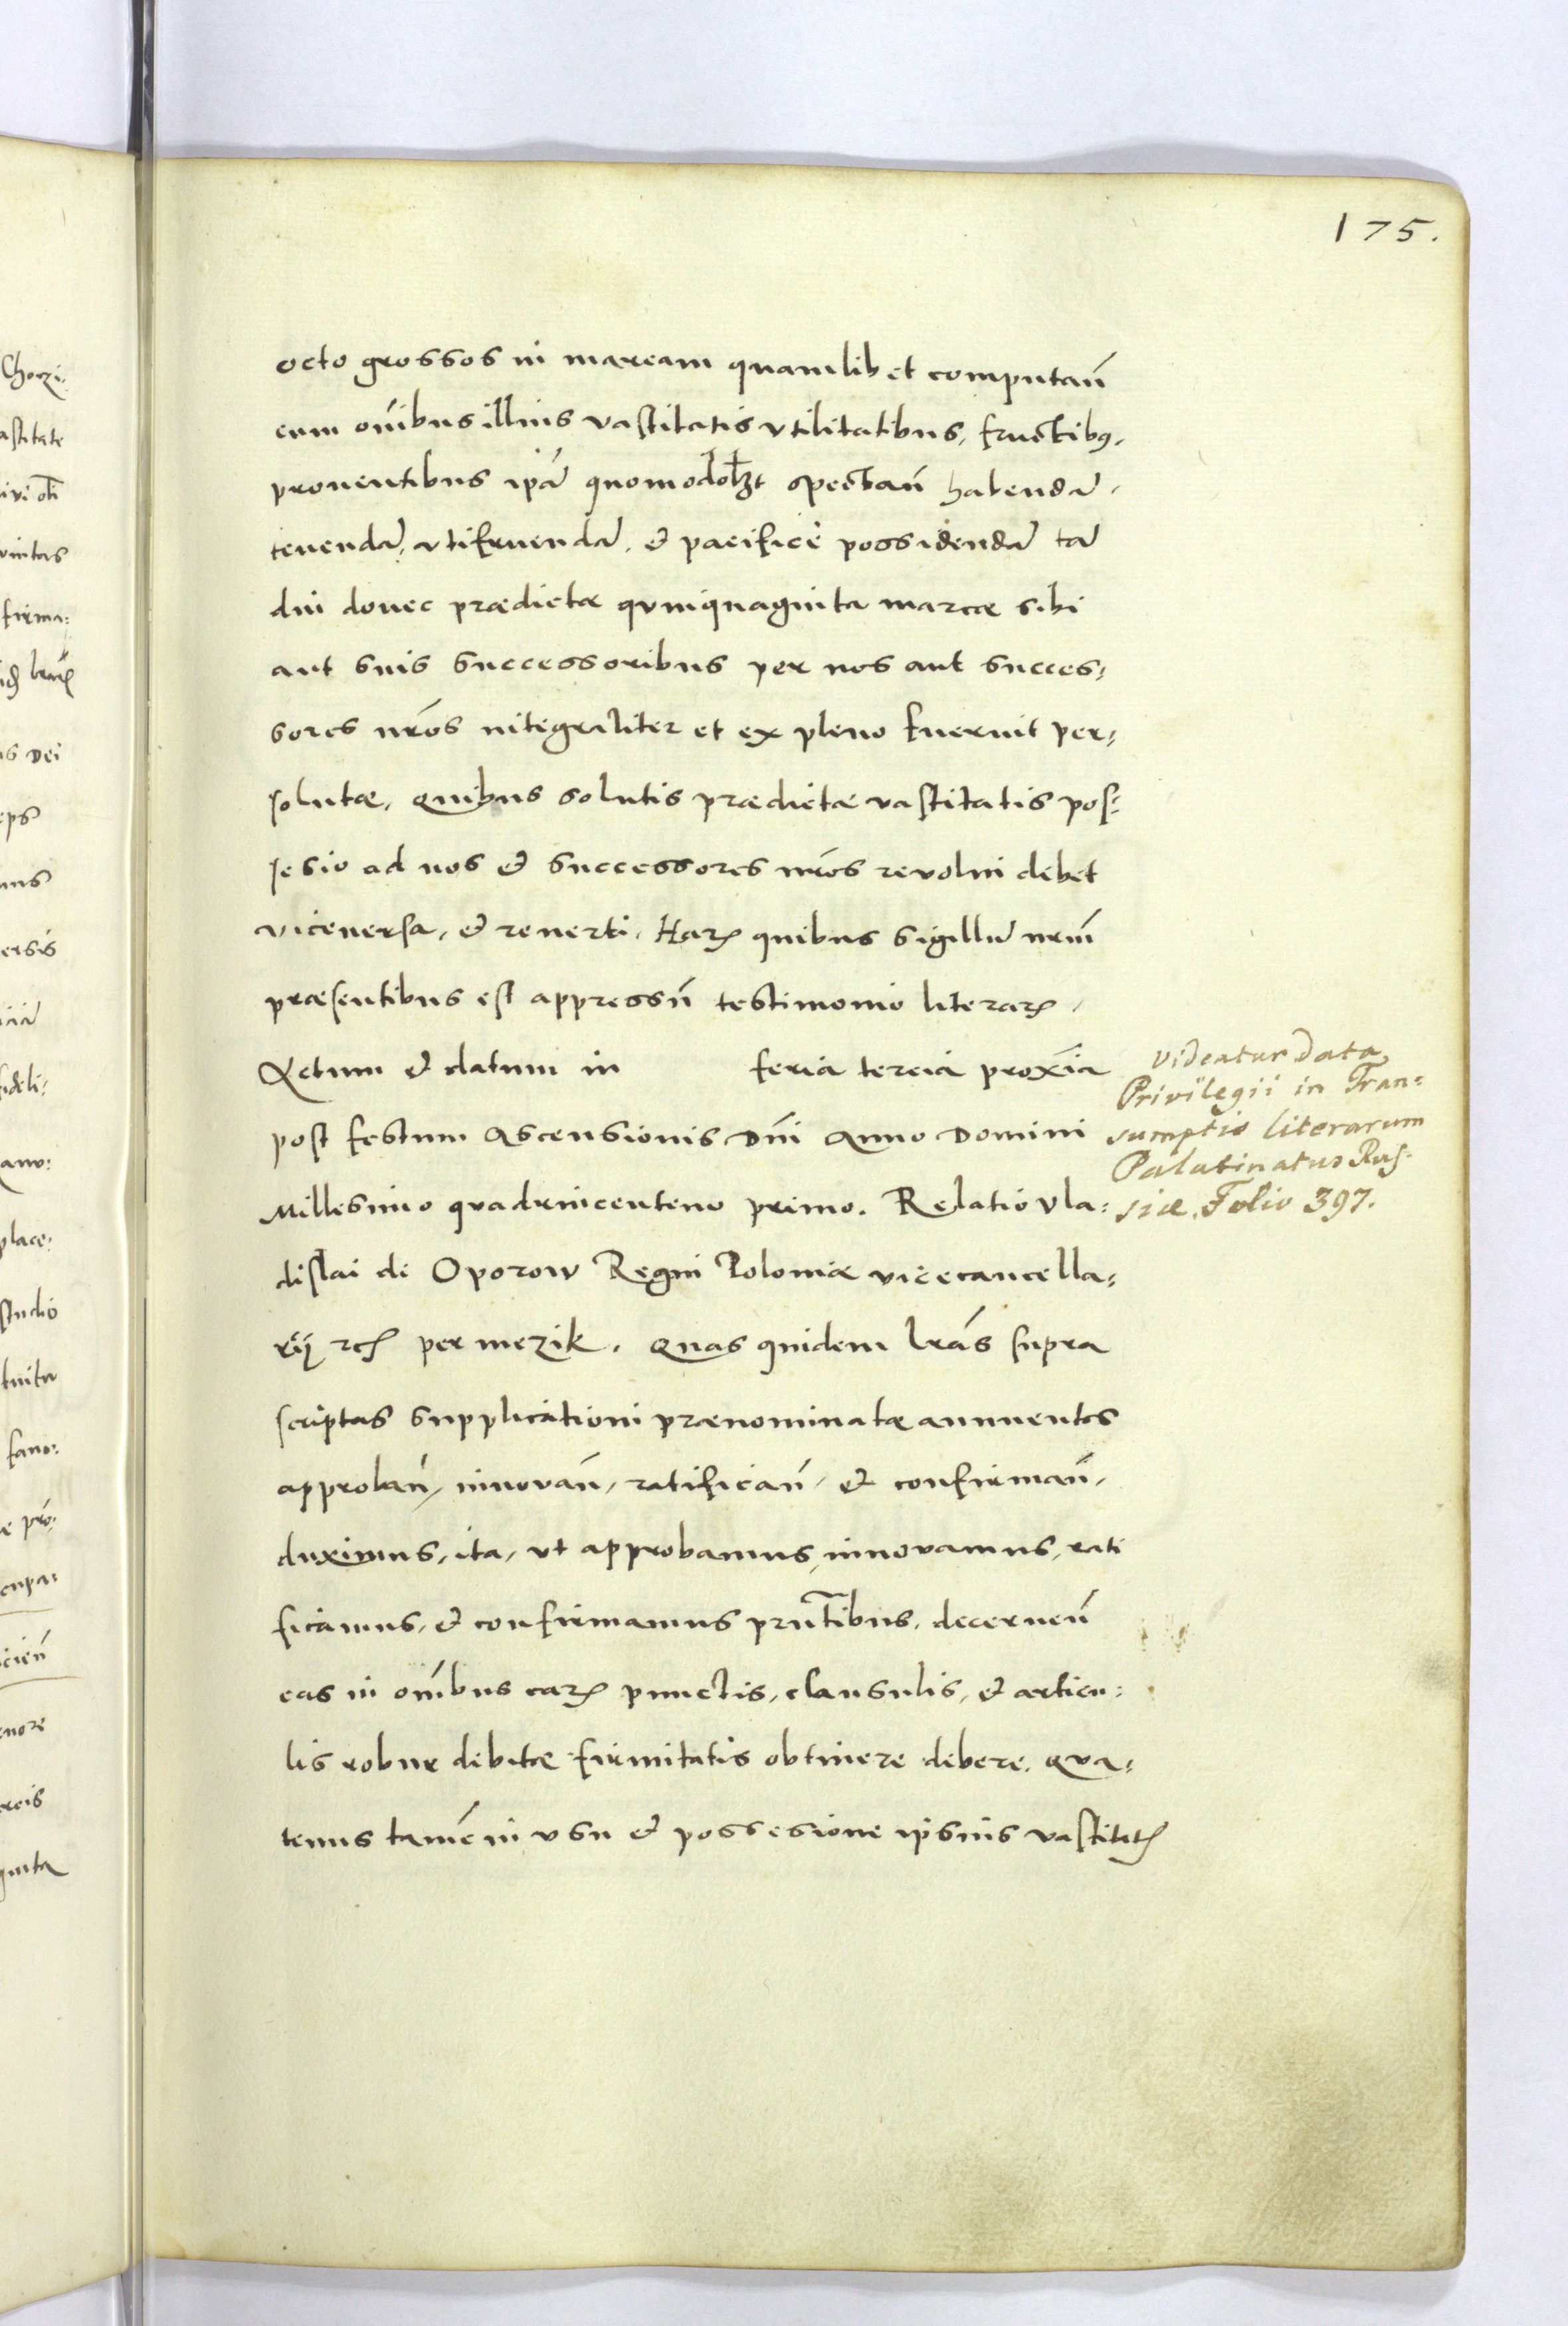 175.
octo grossos in marcam quamlibet computan̄
cum om̄ibus illius vastitatis vtilitatibus, fructibꝯ,
prouentibus ip̄ā quomodolꝫt spectan̄ habendā,
tenendā, vtifruendā, & pacificè possidendā tā
diu donec prædictæ quinquaginta marcæ sibi
aut suis successoribus per nos aut succes:
sores nr̄os integraliter et ex pleno fuerint per:
solutæ, Quibus solutis prædictæ vastitatis pos:
sesio ad nos & successores nr̄os revolui debet
viceuersa, & reuerti, Harꝝ quibus sigillū nrm̄
præsentibus est appressū testimonio literarꝝ,
Actum & datum in feria tercia prox̄ia
post festum Ascensionis Dn̄i Anno Domini
Millesimo quadrincenteno primo. Relatio Vla:
dislai de Oporow Regni Poloniæ vicecancella:
rij rcꝭ per mezik. Quas quidem lr̄as supra
scriptas supplicationi prænominatæ annuentes
approban̄, innovan̄, ratifican̄, & confirman̄,
duximus, ita, vt approbamus, innovamus, rati
ficamus, & confirmamus prn̄tibus, decernen̄
eas in om̄ibus earꝝ punctis, clausulis, & articu:
lis robur debitæ firmitatis obtinere debere. Qua:
tenus tamē in vsu & possesione ipsius vastitatꝭ
Videatur Data
Privilegii in Tran:
sumptis literarum
Palatinatus Rus:
siæ. Folio 397.